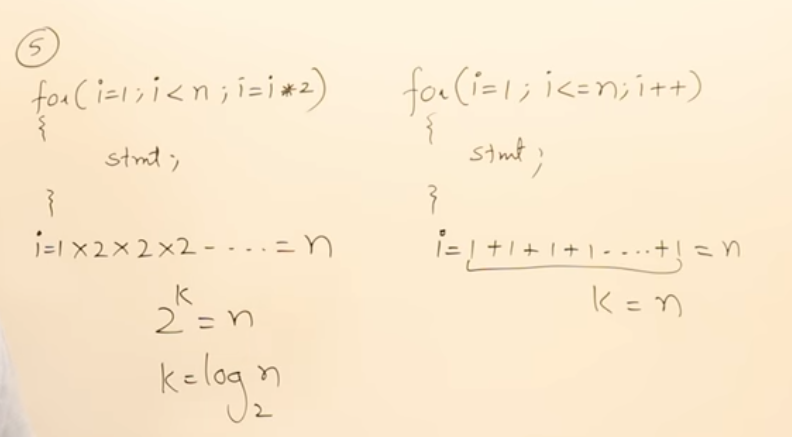 5
for(i=1;i<n;i=i*2)
{
stmt;
}
i=1×2×2×2-....=n
2^k=n
k=log₂n
for(i=1;i<=n;i++)
{
stmt;
}
i=1+1+1+1-....+1=n
k=n